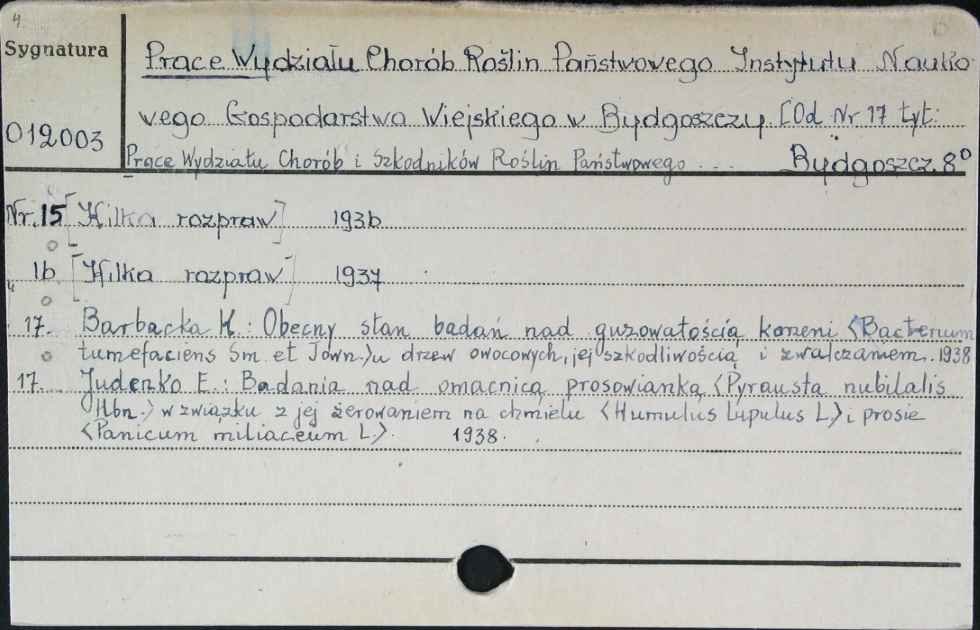 4
Sygnatura
012003
Prace Wydziału Chorób Roślin Państwowego Instytutu Nauko-
wego Gospodarstwa Wiejskiego w Bydgoszczy [Od Nr 17 tyt:
Prace Wydziału Chorób i Szkodników Roślin Państwowego ... Bydgoszcz. 8°
Nr. 15 [Kilka rozpraw] 1936
16 [Kilka rozpraw] 1937
17. Barbacka K.: Obecny stan badań nad guzowatością korzeni <Bacterium
tumefaciens Sm. et Town.> u drzew owocowych, jej szkodliwością i zwalczaniem. 1938
17. Judenko E.: Badania nad omacnicą prosowianką <Pyrausta nubilalis
Hbn.> w związku z jej żerowaniem na chmielu <Humulus Lupulus L> i prosie
<Panicum miliaceum L.> 1938.